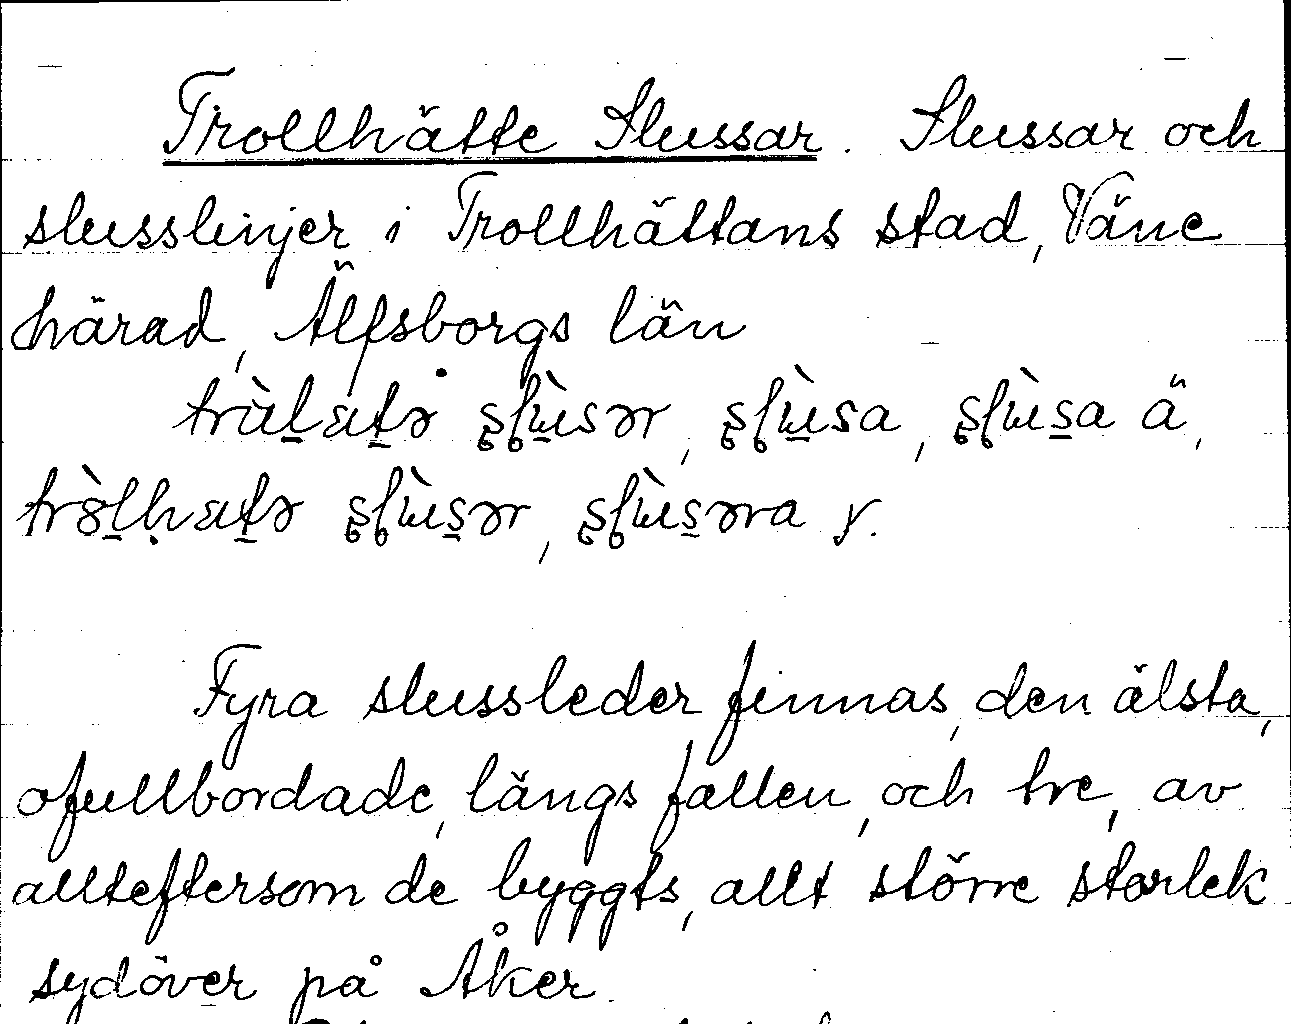 Trollhätte Slussar. Slussar och
slusslinjer i Trollhättans stad, Väne
härad, Älfsborgs län
ä,
y.
Fyra slussleder finnas, den älsta,
ofullbordade, längs fallen, och tre, av
allteftersom de byggts, allt större storlek
sydöver på Åker.